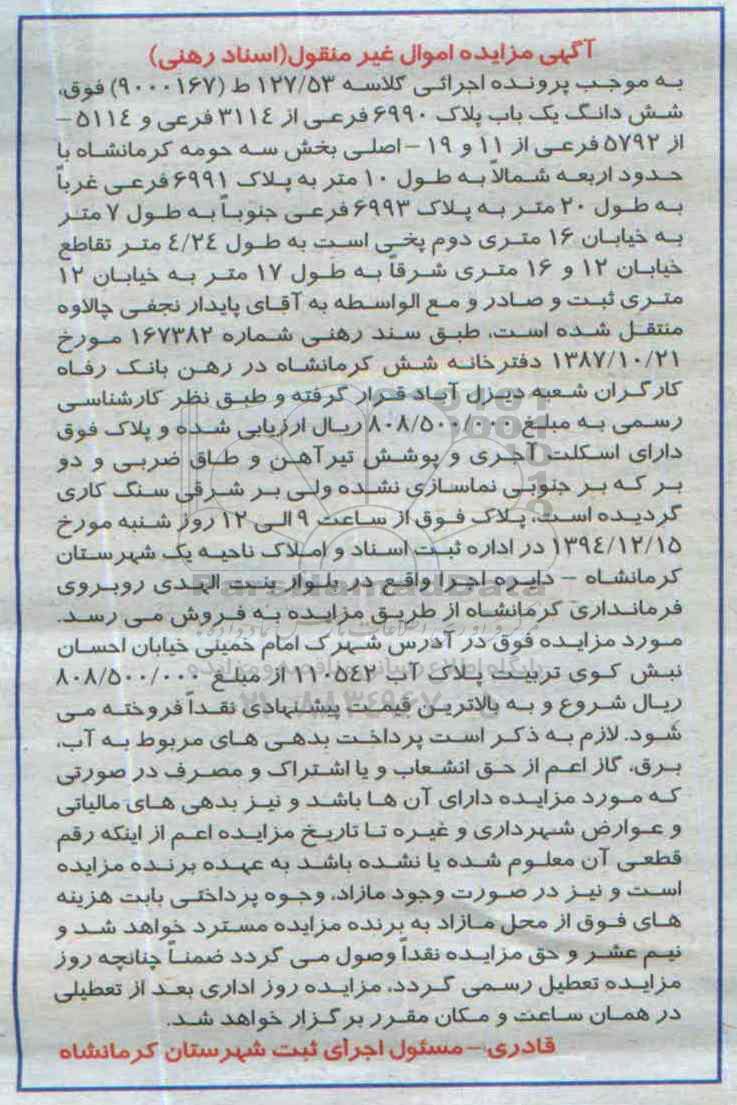 آگهی مزایده اموال غیر منقول(اسناد رهنی)
به موجب پرونده اجرائی کلاسه ۱۲۷/۵۳ ط (۹۰۰۰۱۶۷) فوق،
شش دانگ یک باب پلاک ۶۹۹۰ فرعی از ۳۱۱٤ فرعی و ۵۱۱٤ –
از ۵۷۹۲ فرعی از ۱۱ و ۱۹ – اصلی بخش سه حومه کرمانشاه با
حدود اربعه شمالاً به طول ۱۰ متر به پلاک ۶۹۹۱ فرعی غرباً
به طول ۲۰ متر به پلاک ۶۹۹۳ فرعی جنوباً به طول ۷ متر
به خیابان ۱۶ متری دوم پخی است به طول ٤/۲٤ متر تقاطع
خیابان ۱۲ و ۱۶ متری شرقاً به طول ۱۷ متر به خیابان ۱۲
متری ثبت و صادر و مع الواسطه به آقای پایدار نجفی چالاوه
منتقل شده است، طبق سند رهنی شماره ۱۶۷۳۸۲ مورخ
۱۳۸۷/۱۰/۲۱ دفترخانه شش کرمانشاه در رهن بانک رفاه
کارگران شعبه دیزل آباد قرار گرفته و طبق نظر کارشناسی
رسمی به مبلغ ۸۰۸/۵۰۰/۰۰۰ ریال ارزیابی شده و پلاک فوق
دارای اسکلت آجری و پوشش تیرآهن و طاق ضربی و دو
بر که بر جنوبی نماسازی نشده ولی بر شرقی سنگ کاری
گردیده است، پلاک فوق از ساعت ۹ الی ۱۲ روز شنبه مورخ
۱۳۹٤/۱۲/۱۵ در اداره ثبت اسناد و املاک ناحیه یک شهرستان
کرمانشاه – دایره اجرا واقع در بلوار بنت الهدی روبروی
فرمانداری کرمانشاه از طریق مزایده به فروش می رسد.
مورد مزایده فوق در آدرس شهرک امام خمینی خیابان احسان
نبش کوی تربیت پلاک آب ۱۱۰۵٤۲ از مبلغ ۸۰۸/۵۰۰/۰۰۰
ریال شروع و به بالاترین قیمت پیشنهادی نقداً فروخته می
شود. لازم به ذکر است پرداخت بدهی های مربوط به آب،
برق، گاز اعم از حق انشعاب و یا اشتراک و مصرف در صورتی
که مورد مزایده دارای آن ها باشد و نیز بدهی های مالیاتی
و عوارض شهرداری و غیره تا تاریخ مزایده اعم از اینکه رقم
قطعی آن معلوم شده یا نشده باشد به عهده برنده مزایده
است و نیز در صورت وجود مازاد، وجوه پرداختی بابت هزینه
های فوق از محل مازاد به برنده مزایده مسترد خواهد شد و
نیم عشر و حق مزایده نقداً وصول می گردد ضمناً چنانچه روز
مزایده تعطیل رسمی گردد، مزایده روز اداری بعد از تعطیلی
در همان ساعت و مکان مقرر برگزار خواهد شد.
قادری – مسئول اجرای ثبت شهرستان کرمانشاه
ParsNamadData